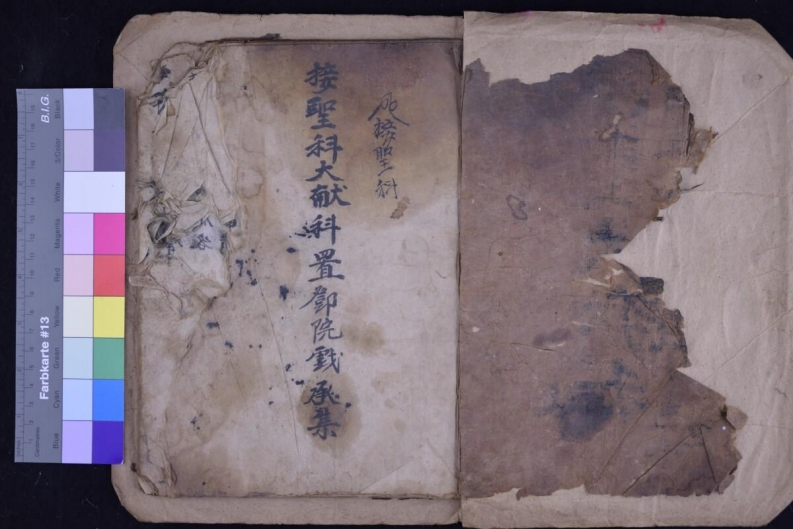 接聖科
接聖科大献科置鄧院戲承集
承
B.I.G.
Farbkarte #13
Black
3/Color
White
Magenta
Red
Yellow
Green
Cyan
Blue
Centimetres